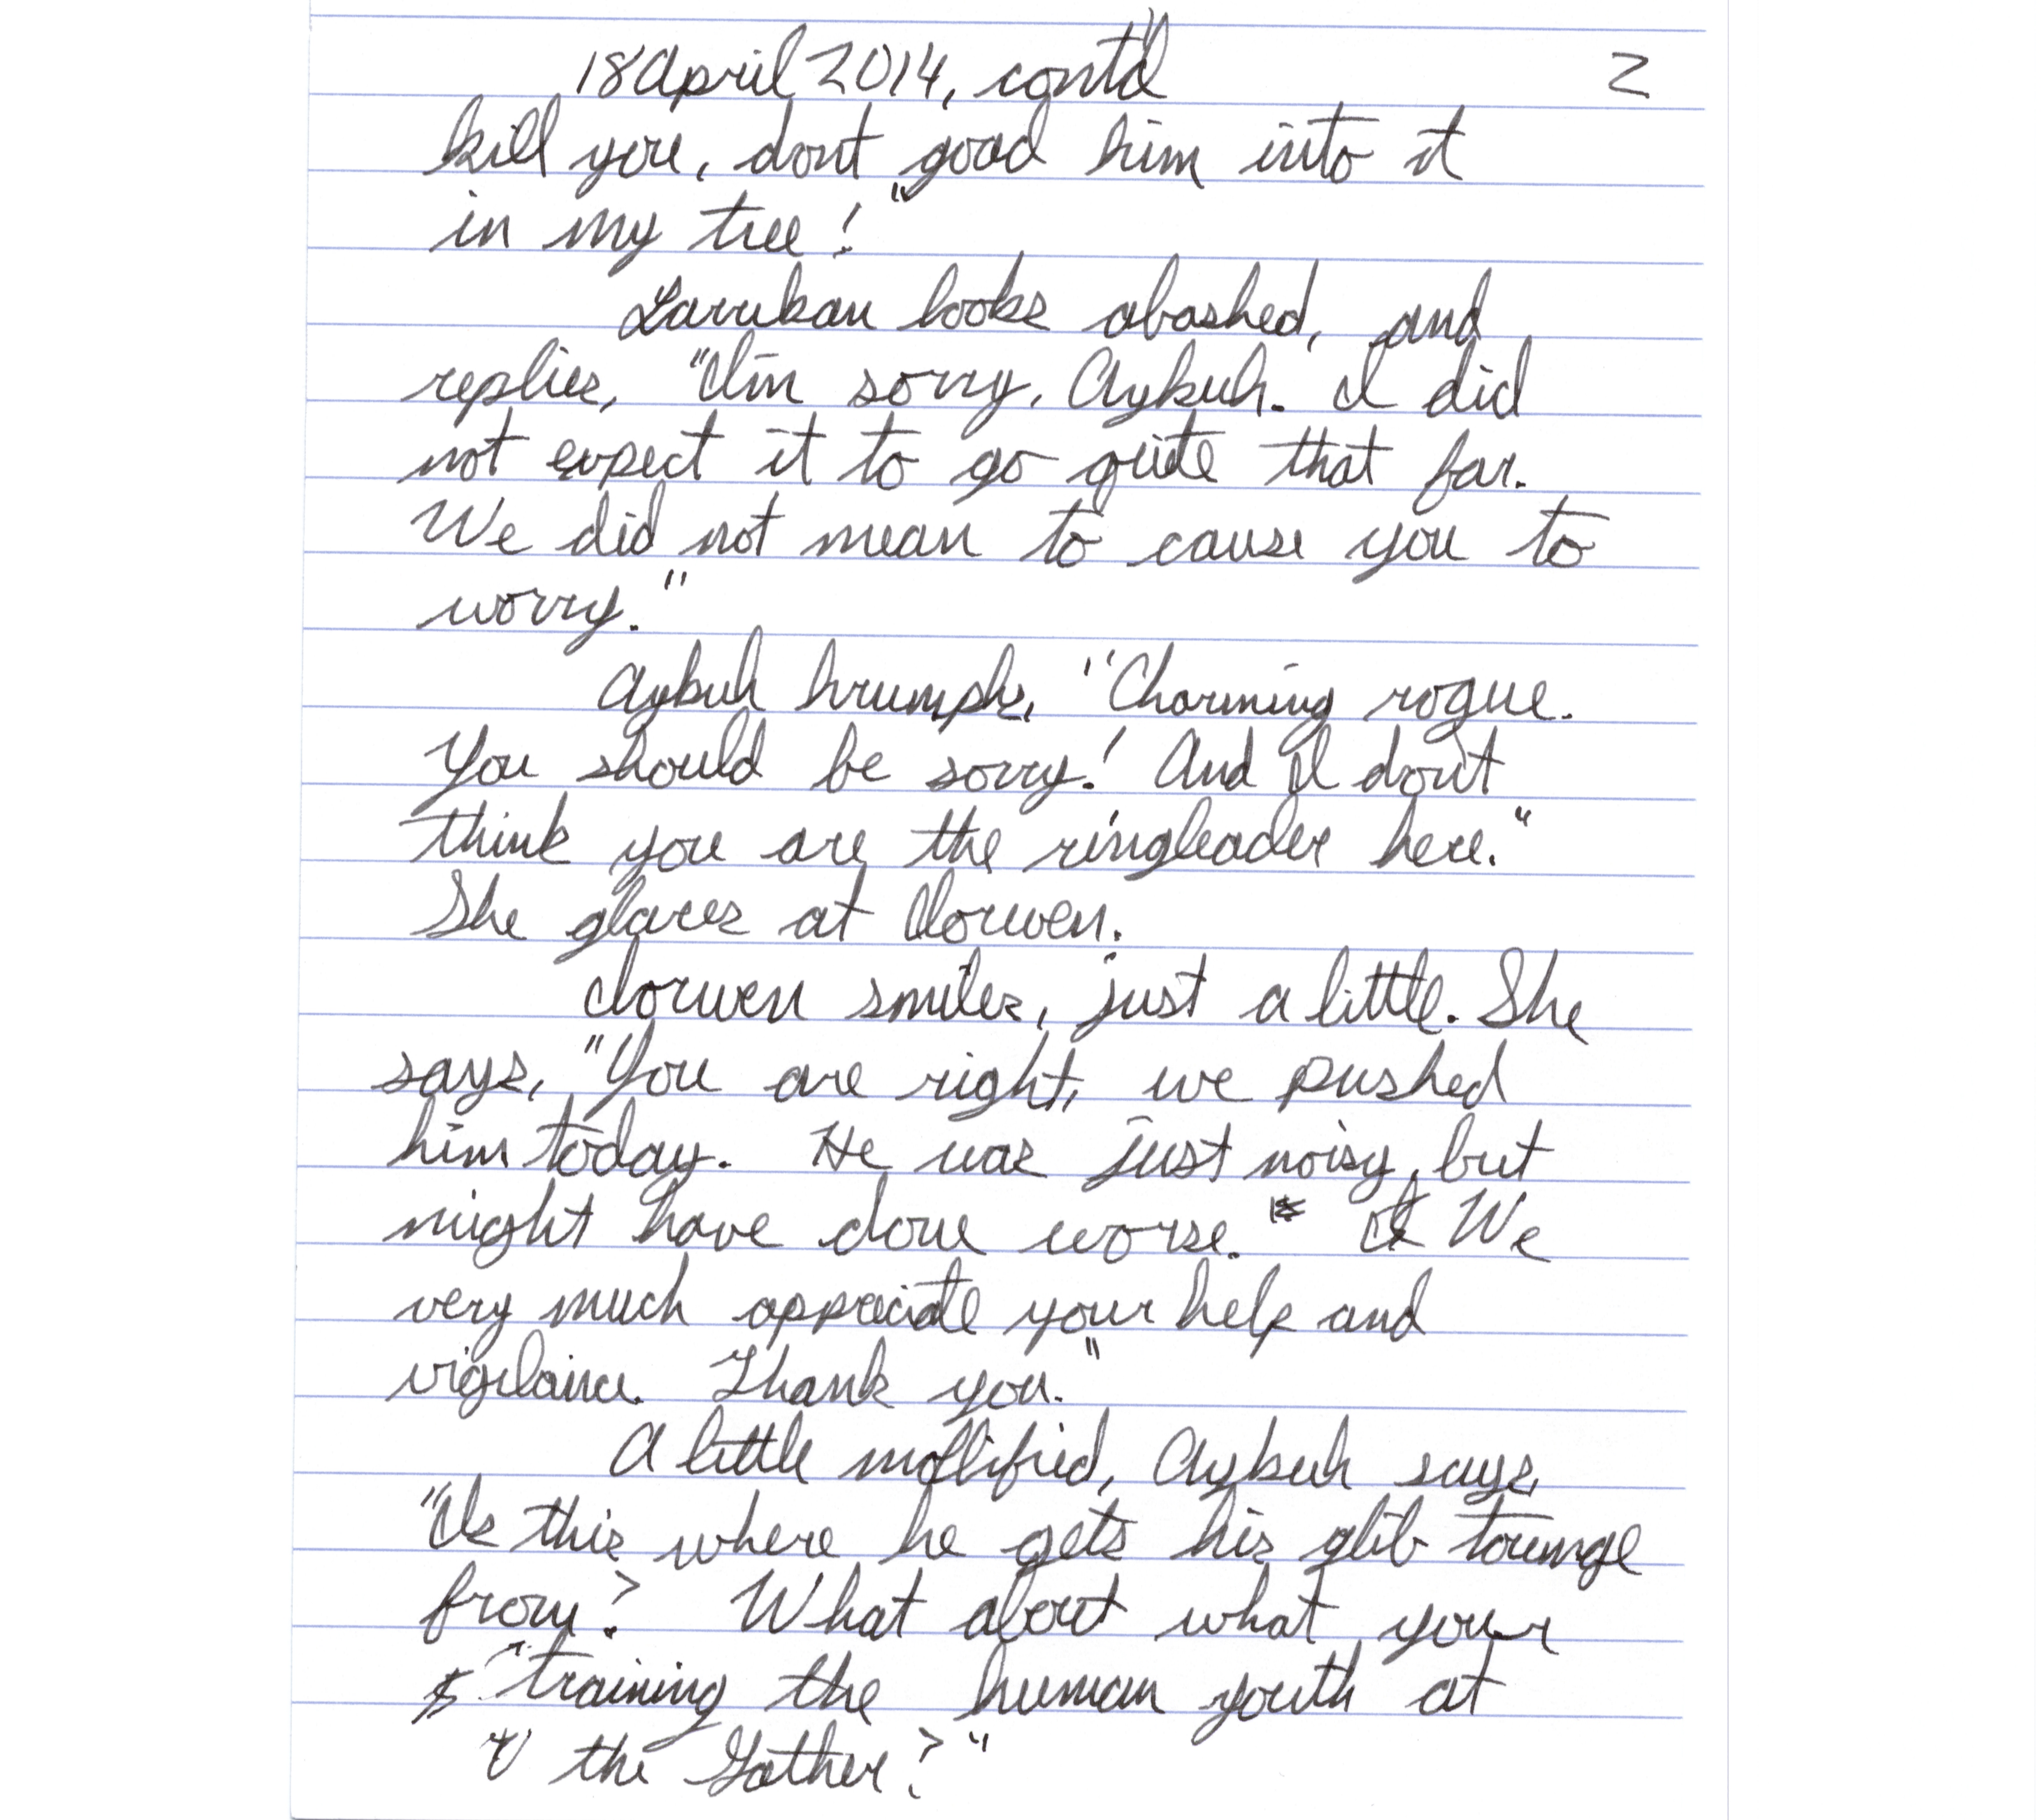 18 April 2014, contd 2
kill you, dont goad him into it
in my tree!"
Larukan looks abashed, and
replies, "I'm sorry, Aykuh. I did
not expect it to go quite that far.
We did not mean to cause you to
worry."
Aykuh hrumphs, "Charming rogue.
You should be sorry! And I don't
think you are the ringleader here."
She glares at Iorwen.
Iorwen smiles, just a little. She
says, "You are right, we pushed
him today. He was just noisy, but
might have done worse. We
very much appreciate your help and
vigilance. Thank you."
A little mollified, Aykuh says,
"Is this where he gets his glib tounge
from? What about what your
training the human youth at
the Gather?"